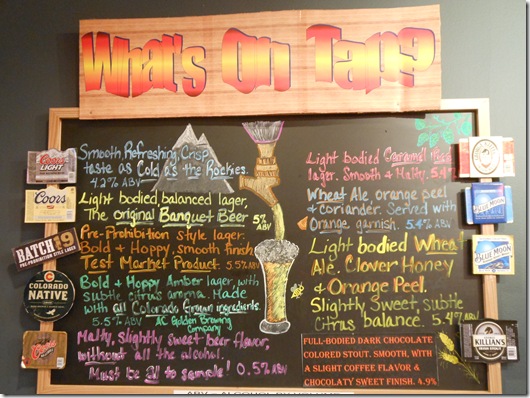 What's On Tap?
COORS LIGHT
Smooth, Refreshing, Crisp
taste as Cold as the Rockies.
4.2% ABV
Coors
Light bodied, balanced lager,
The original Banquet Beer 5%
ABV
BATCH 19
Pre-Prohibition Style lager.
Bold & Hoppy, smooth finish
Test Market Product. 5.5% ABV
COLORADO
NATIVE
Bold & Hoppy Amber lager, with
subtle citrus aroma. Made
with all Colorado Grown ingredients.
5.5% ABV AC Golden Brewing
Company
Coors
Malty, slightly sweet beer flavor,
without all the alcohol.
Must be all to sample! 0.5% ABV
Light bodied Caramel
lager. Smooth & Malty. 5.4%
Wheat Ale, orange peel
& Coriander. Served with
Orange garnish. 5.4% ABV
BLUE MOON
Light bodied Wheat
Ale. Clover Honey
& Orange Peel.
Slightly Sweet, subtle
Citrus balance. 5.4%
BLUE MOON
FULL-BODIED DARK CHOCOLATE
COLORED STOUT. SMOOTH, WITH
A SLIGHT COFFEE FLAVOR &
CHOCOLATY SWEET FINISH. 4.9%
KILLIAN'S